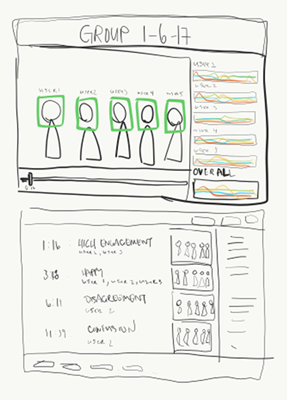 GROUP 1-6-17
USER 1
USER 1 USER 2 USER 3 USER 4 USER 5
USER 2
USER 3
USER 4
USER 5
OVERALL
1:16 HIGH ENGAGEMENT
USER 1, USER 3
HAPPY
USER 1, USER 2, USER 3
DISAGREEMENT
USER 2
CONFUSION
USER 2